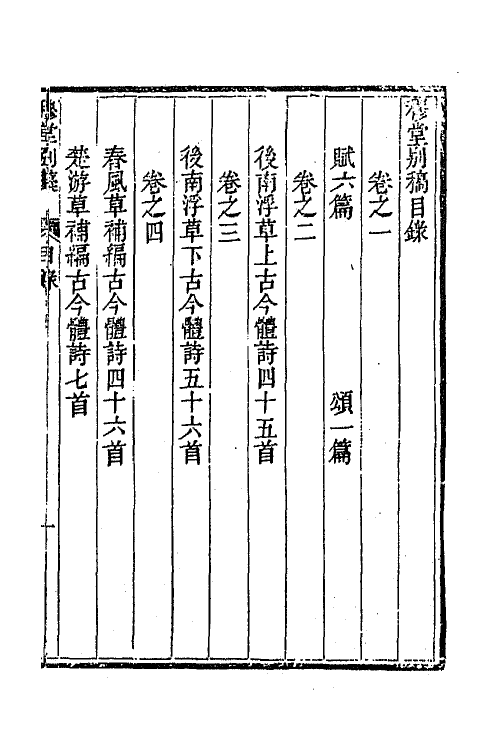 穆堂別稿目錄
卷之一
賦六篇　頌一篇
卷之二
後南浮草上古今體詩四十五首
卷之三
後南浮草下古今體詩五十六首
卷之四
春風草補編古今體詩四十六首
楚游草補編古今體詩七首
穆堂別稿　目錄　一